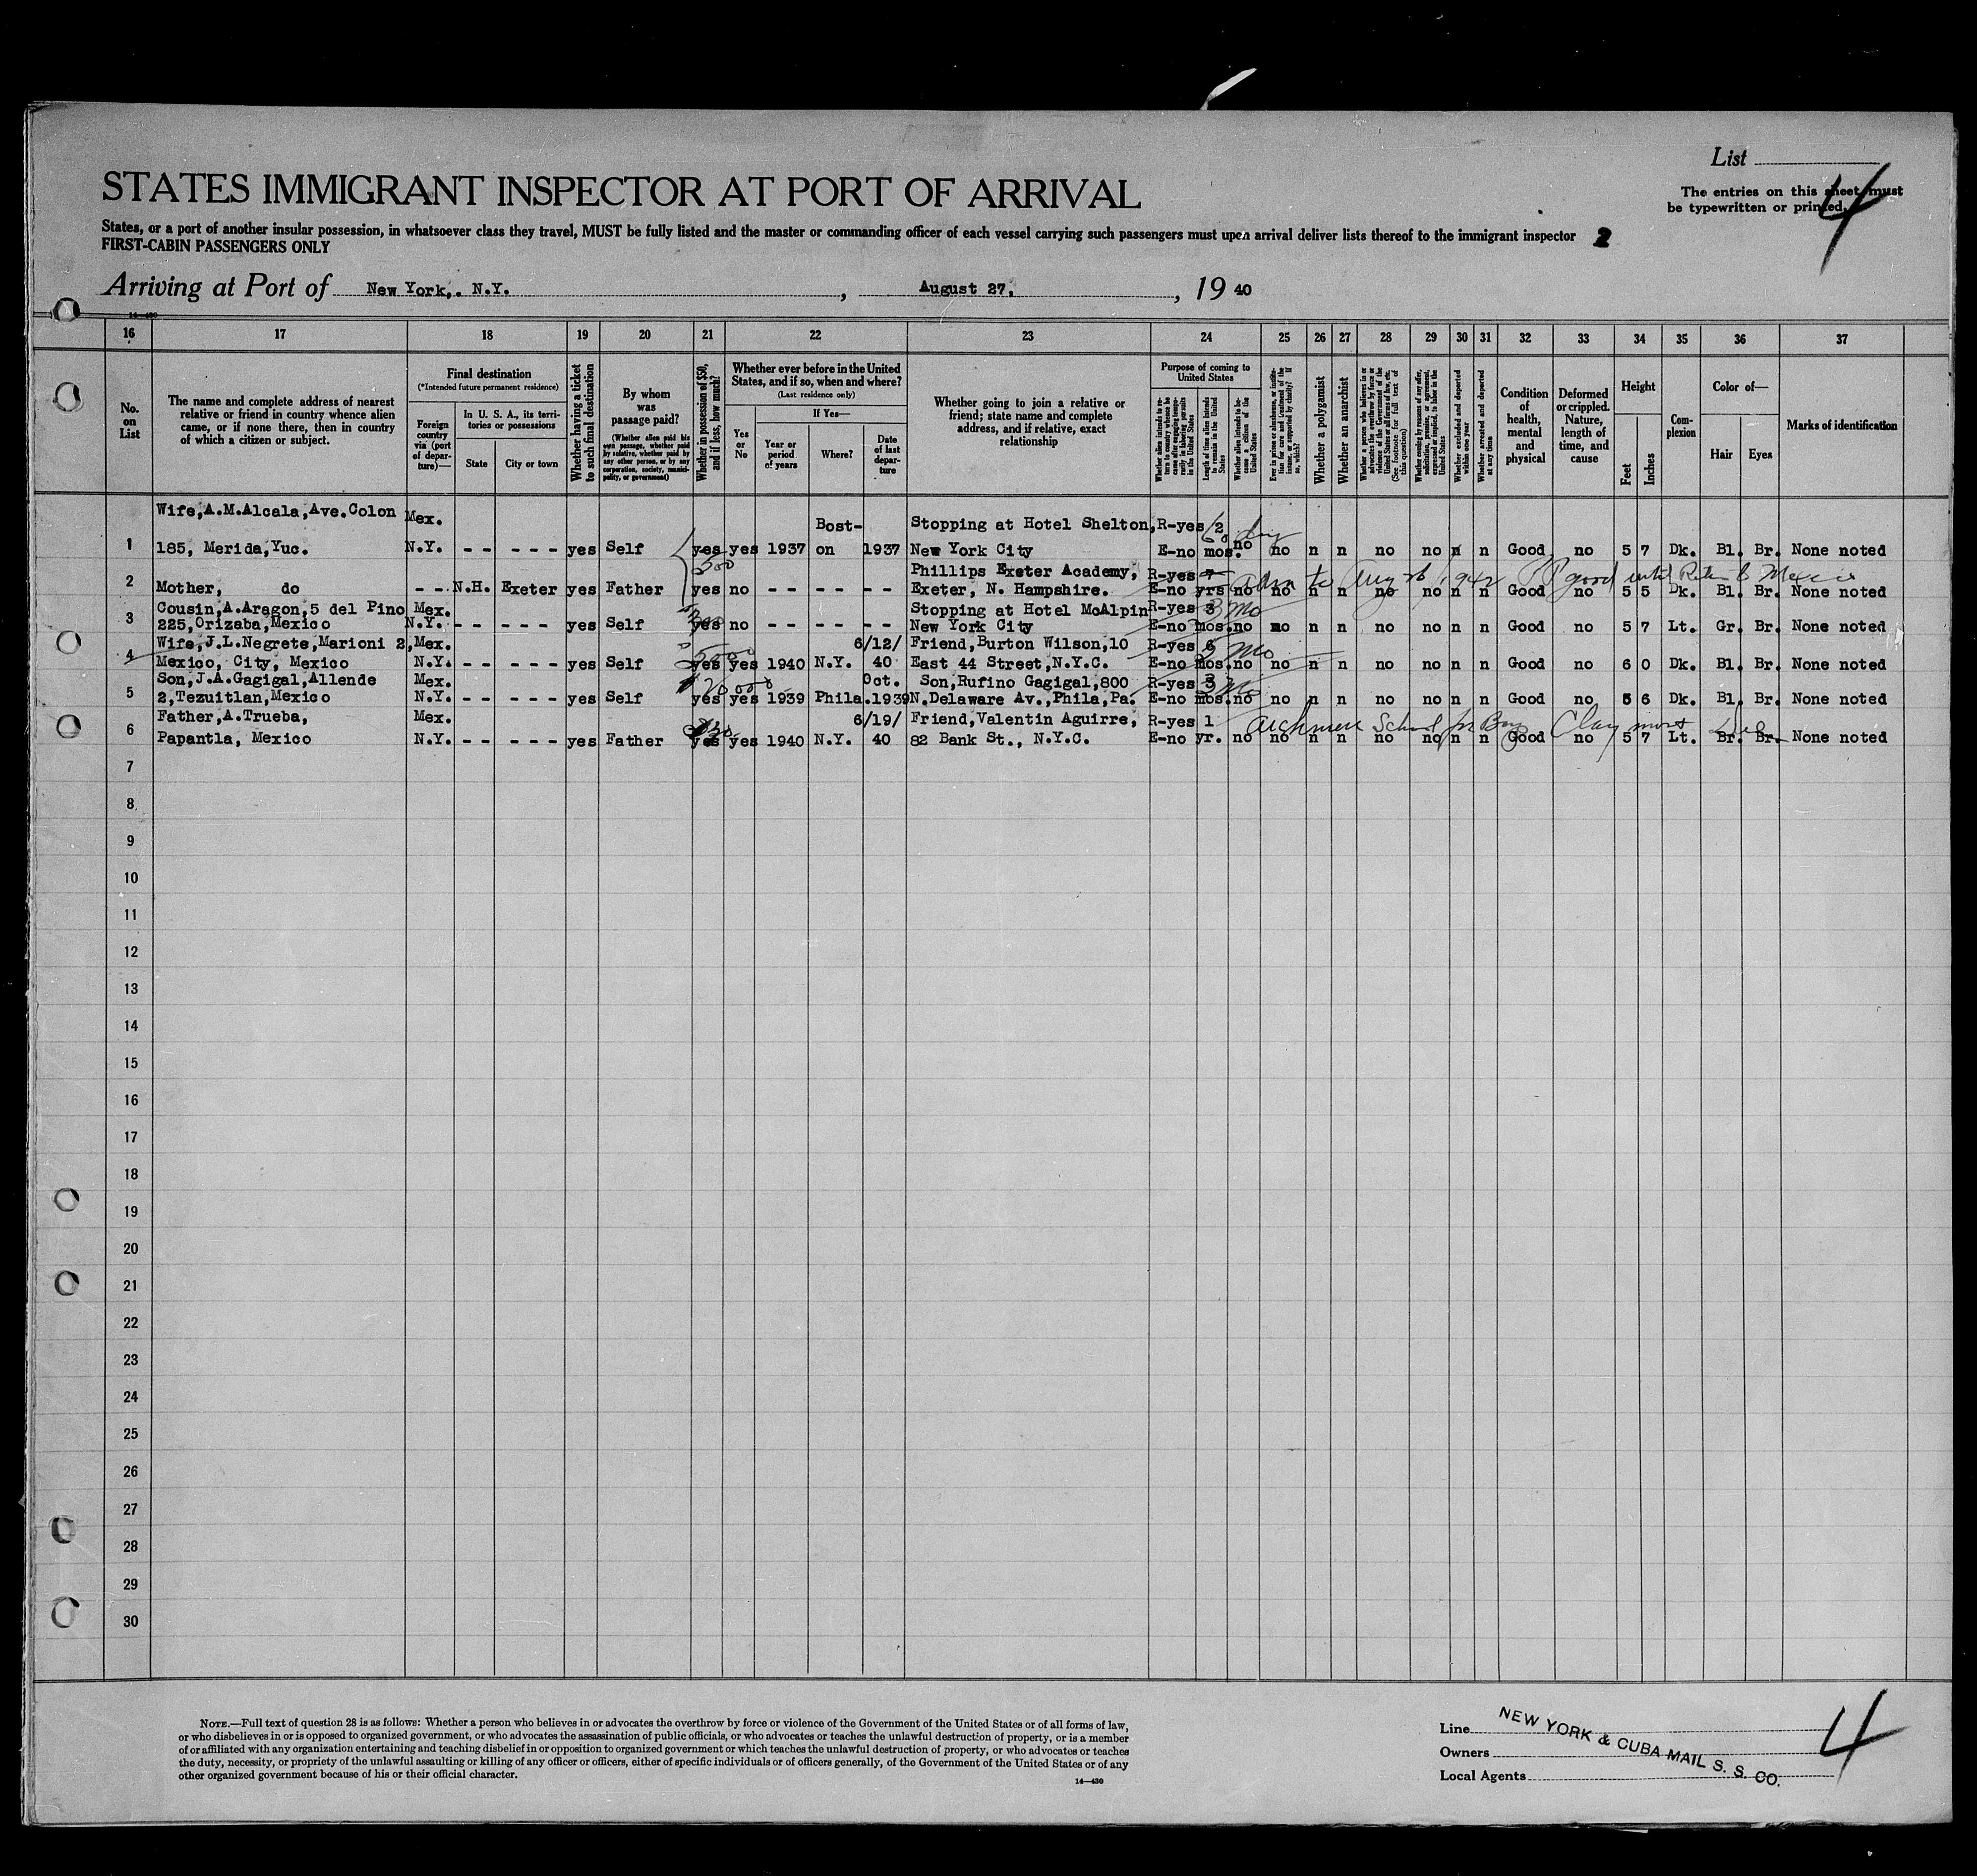 List
4
STATES IMMIGRANT INSPECTOR AT PORT OF ARRIVAL
The entries on this sheet must
be typewritten or printed.
States, or a port of another insular possession, in whatsoever class they travel, MUST be fully listed and the master or commanding officer of each vessel carrying such passengers must upon arrival deliver lists thereof to the immigrant inspector
2
FIRST-CABIN PASSENGERS ONLY
Arriving at Port of New York,. N.Y. , August 27, , 19 40
14—430
16 17 18 19 20 21 22 23 24 25 26 27 28 29 30 31 32 33 34 35 36 37
No. on List
The name and complete address of nearest relative or friend in country whence alien came, or if none there, then in country of which a citizen or subject.
Final destination
(*Intended future permanent residence)
Foreign country via (port of departure)—
In U. S. A., its territories or possessions
State
City or town
Whether having a ticket to such final destination
By whom was passage paid?
(Whether alien paid his own passage, whether paid by relative, whether paid by any other person, or by any corporation, society, municipality, or government)
Whether in possession of $50, and if less, how much?
Whether ever before in the United States, and if so, when and where?
(Last residence only)
Yes or No
If Yes—
Year or period of years
Where?
Date of last departure
Whether going to join a relative or friend; state name and complete address, and if relative, exact relationship
Purpose of coming to United States
Whether alien intends to return to country whence he came after engaging temporarily in laboring pursuits in the United States
Length of time alien intends to remain in the United States
Whether alien intends to become a citizen of the United States
Ever in prison or almshouse, or institution for care and treatment of the insane, or supported by charity? If so, which?
Whether a polygamist
Whether an anarchist
Whether a person who believes in or advocates the overthrow by force or violence of the Government of the United States or all forms of law, etc. (See footnote for full text of this question)
Whether coming by reason of any offer, solicitation, promise, or agreement, expressed or implied, to labor in the United States
Whether excluded and deported within one year
Whether arrested and deported at any time
Condition of health, mental and physical
Deformed or crippled. Nature, length of time, and cause
Height
Feet
Inches
Complexion
Color of—
Hair
Eyes
Marks of identification
Wife,A.M.Alcala,Ave.Colon Mex. Bost- Stopping at Hotel Shelton, R-yes 2 60 day
1 185, Merida,Yuc. N.Y. - - - - - yes Self yes yes 1937 on 1937 New York City E-no mos. no no n n no no n n Good no 5 7 Dk. Bl. Br. None noted
500
Phillips Exeter Academy, R-yes adm to Aug 26 1942 PP good until Retn to Mexico
2 Mother, do - - N.H. Exeter yes Father yes no - - - - - - Exeter, N. Hampshire. E-no yrs no no n n no no n n Good no 5 5 Dk. Bl. Br. None noted
Cousin,A.Aragon,5 del Pino Mex. Stopping at Hotel McAlpin R-yes 3 3 Mo
3 225,Orizaba,Mexico N.Y. - - - - - yes Self yes no - - - - - - New York City E-no mos. no no n n no no n n Good no 5 7 Lt. Gr. Br. None noted
Wife,J.L.Negrete,Marioni 2, Mex. 6/12/ Friend,Burton Wilson,10 R-yes 6
4 Mexico, City, Mexico N.Y. - - - - - yes Self yes yes 1940 N.Y. 40 East 44 Street,N.Y.C. E-no mos. no no n n no no n n Good no 6 0 Dk. Bl. Br. None noted
Son,J.A.Gagigal,Allende Mex. Oct. Son,Rufino Gagigal,800 R-yes 3 3 Mo
5 2,Tezuitlan,Mexico N.Y. - - - - - yes Self yes yes 1939 Phila. 1939 N.Delaware Av.,Phila,Pa. E-no mos. no no n n no no n n Good no 5 6 Dk. Bl. Br. None noted
Father,A.Trueba, Mex. 6/19/ Friend,Valentin Aguirre, R-yes 1 Archmere School for Boys Claymont Del
6 Papantla, Mexico N.Y. - - - - - yes Father yes yes 1940 N.Y. 40 82 Bank St., N.Y.C. E-no yr. no no n n no no n n Good no 5 7 Lt. Br. Br. None noted
7
8
9
10
11
12
13
14
15
16
17
18
19
20
21
22
23
24
25
26
27
28
29
30
NOTE.—Full text of question 28 is as follows: Whether a person who believes in or advocates the overthrow by force or violence of the Government of the United States or of all forms of law,
or who disbelieves in or is opposed to organized government, or who advocates the assassination of public officials, or who advocates or teaches the unlawful destruction of property, or is a member
of or affiliated with any organization entertaining and teaching disbelief in or opposition to organized government or which teaches the unlawful destruction of property, or who advocates or teaches
the duty, necessity, or propriety of the unlawful assaulting or killing of any officer or officers, either of specific individuals or of officers generally, of the Government of the United States or of any
other organized government because of his or their official character.
14—430
Line
Owners
Local Agents
NEW YORK & CUBA MAIL S. S. CO.
4